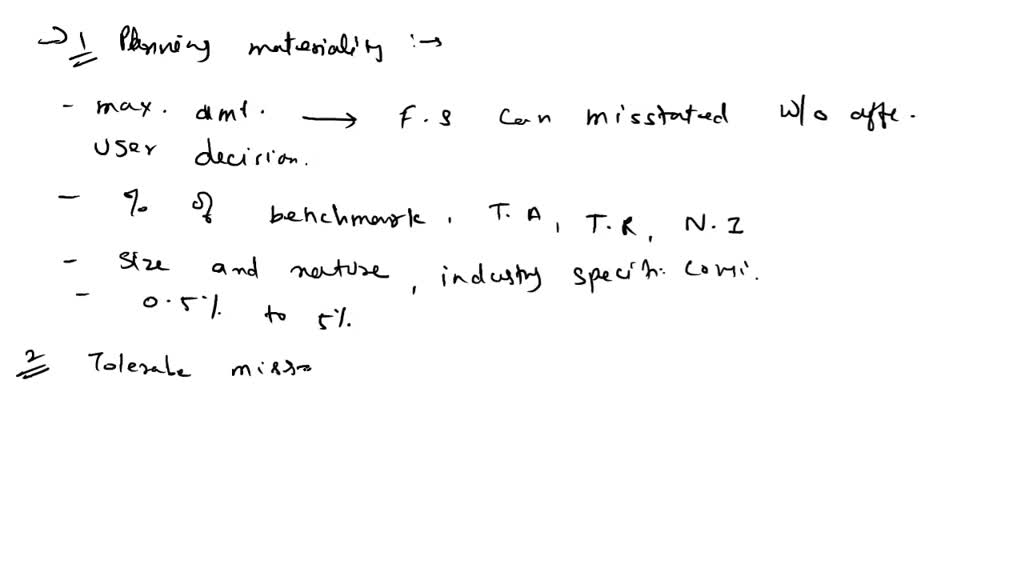 → 1 Planning materiality :→
- max. amt. → F.S can misstated w/o affe.
user decision.
- % of benchmark, T.A, T.R, N.I
- Size and nature, industry specifi. consi.
- 0.5% to 5%
2 Tolerate miss